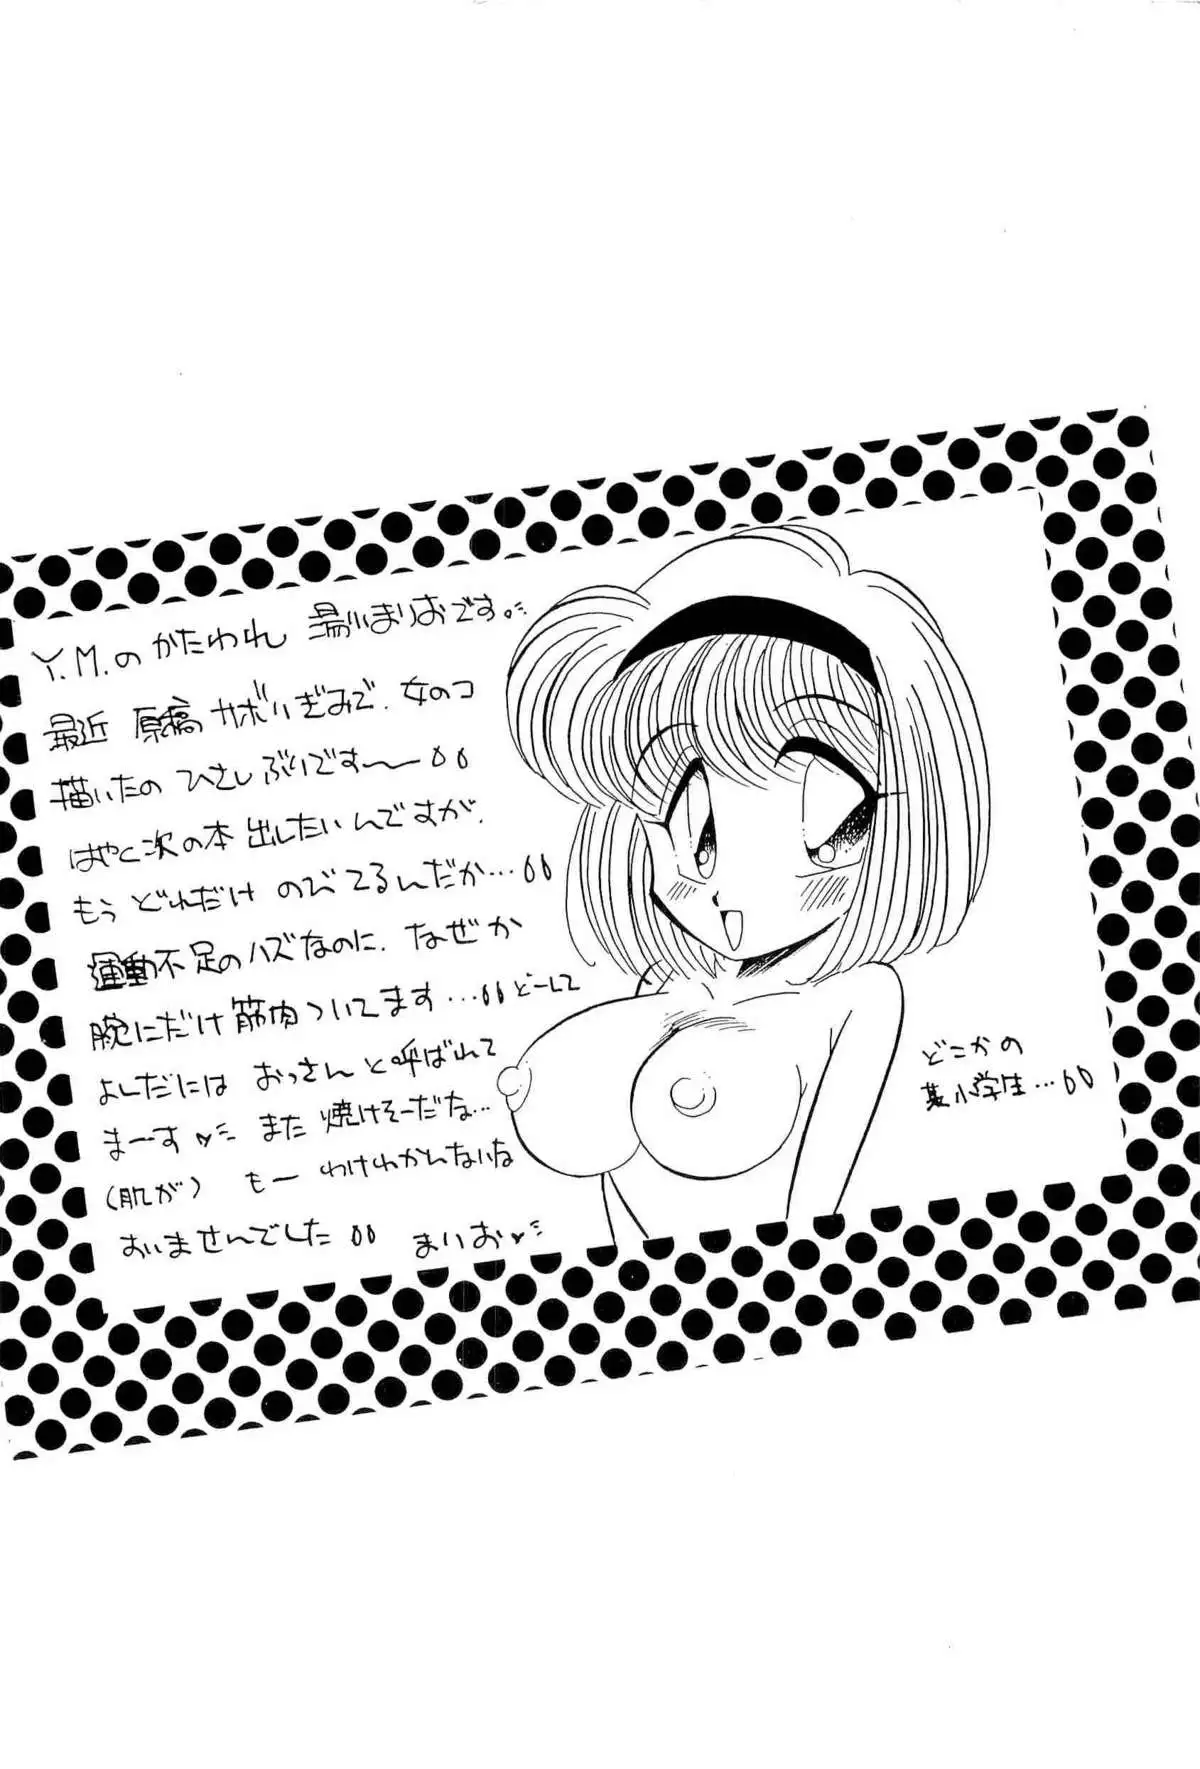 Y.M.のかたわれ 湯いまりおです。
最近 原稿 サボりぎみで、女のコ
描いたの ひさしぶりです〜
はやく次の本 出したいんですが、
もう どれだけ のびてるんだか…
運動不足のハズなのに、なぜか
腕にだけ筋肉ついてます… どーして
よしだには おっさんと呼ばれて
まーす♥ また 焼けそーだな…
(肌が) もー わけわかんないな
おいませんでした まりお♥
どこかの
某小学生…